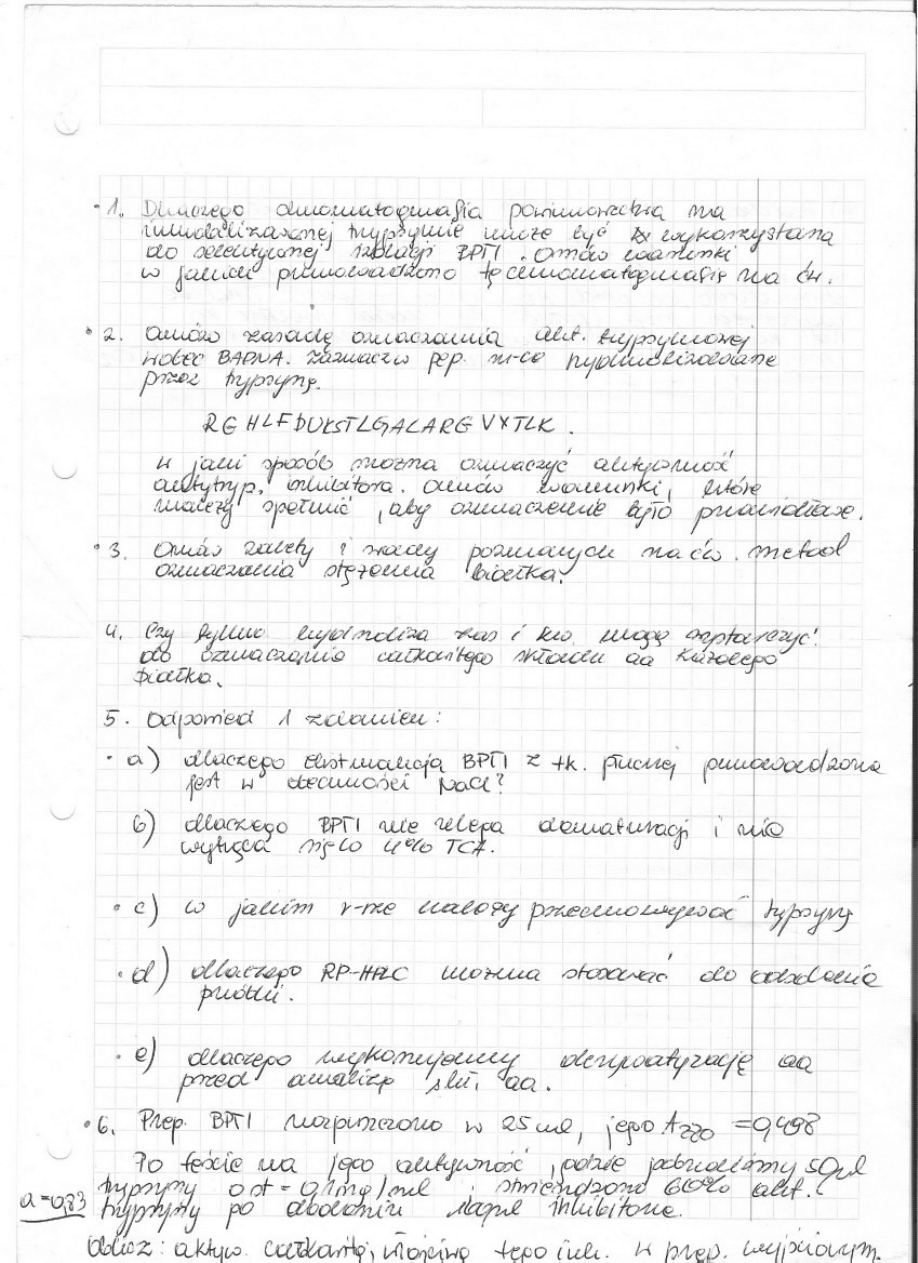 1. Dlaczego chromatografia powinowactwa na
immobilizowanej trypsynie może być wykorzystana
do selektywnej izolacji BPTI. Omów warunki
w jakich prowadzono tę chromatografię na ćw.
2. Omów zasadę oznaczania akt. trypsynowej
wobec BAPNA. Zaznacz w pep. m-ce hydrolizowane
przez trypsynę.
RGHLFDUKSTLGALARGVXTLK.
W jaki sposób można oznaczyć aktywność
antytryp. inhibitora. Omów warunki, które
należy spełnić, aby oznaczenie było prawidłowe.
3. Omów zalety i wady poznanych na ćw. metod
oznaczania stężenia białka.
4. Czy tylko hydroliza zas i kw. mogą wystarczyć
do oznaczania całkowitego składu aa każdego
białka.
5. Odpowied 1 zdaniem:
a) dlaczego ekstrakcja BPTI z tk. płucnej prowadzona
jest w obecności NaCl?
b) dlaczego BPTI nie ulega denaturacji i nie
wytrąca się w 4% TCA.
c) w jakim r-rze należy przechowywać trypsynę
d) dlaczego RP-HPLC można stosować do odsolenia
próbki.
e) dlaczego wykonujemy derywatyzację aa
przed analizą skł. aa.
6. Prep. BPTI rozpuszczono w 25 ml, jego A₂₈₀ = 0,498
Po teście na jego aktywność, gdzie pobraliśmy 50µl
trypsyny o st = 0,1mg/ml stwierdzono 60% akt.
a=0,83 trypsyny po dodaniu inhibitora.
Oblicz: aktyw. całkowitą, właściwą tego inh. w prep. wyjściowym.